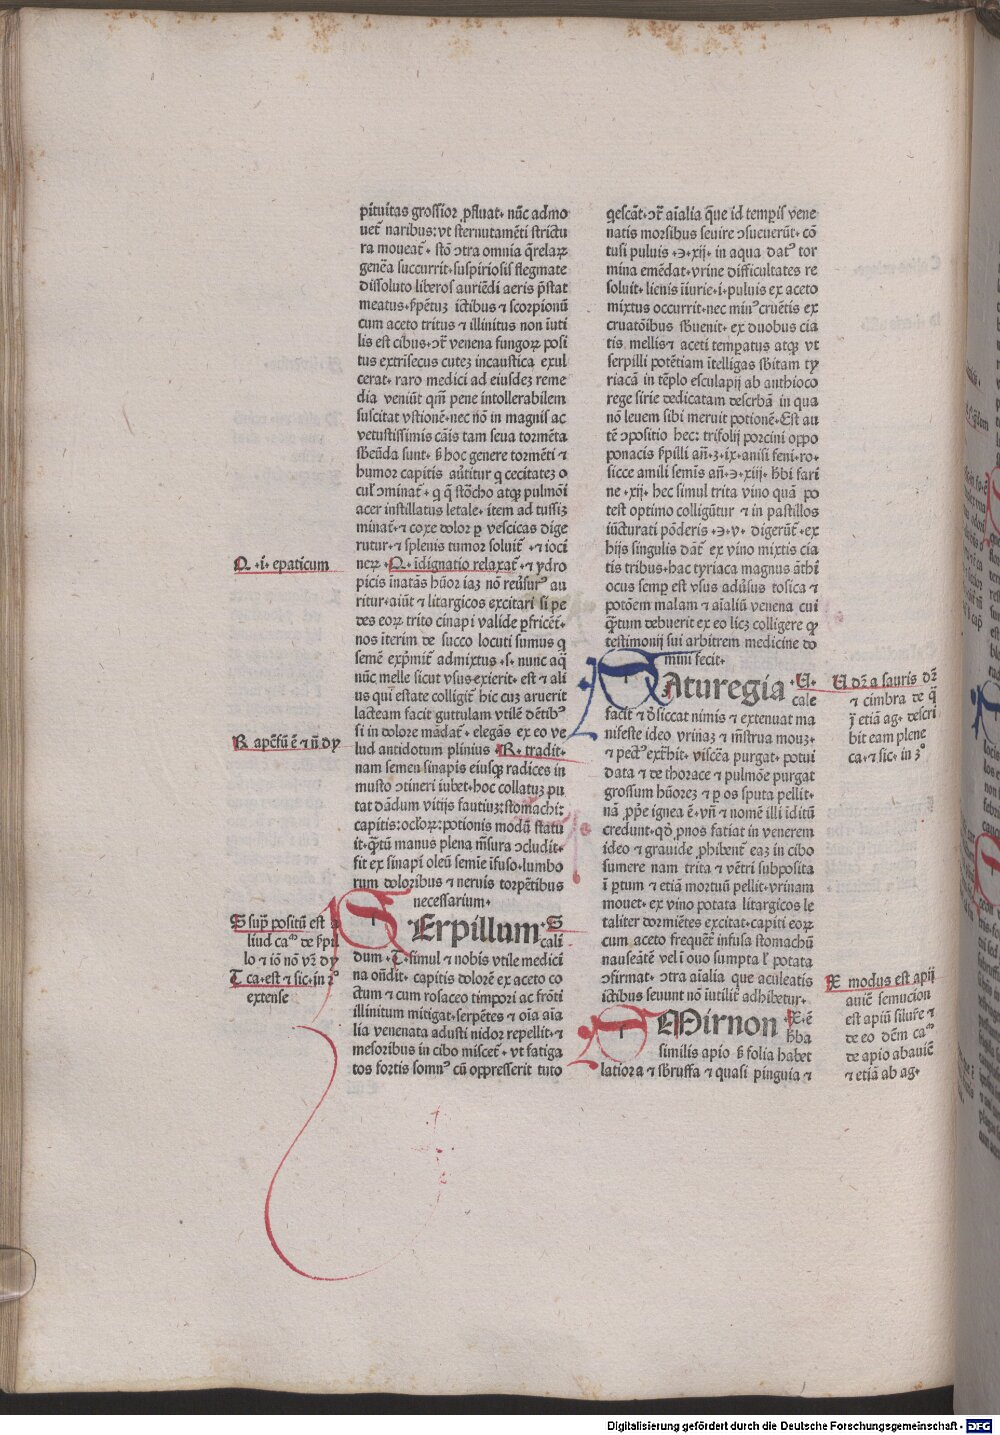 pituitas grossior ꝓfluat· nūc admo
uet̄ naribus: vt sternutamēti strictu
ra moueat̄· stō ↄtra omnia q̄relaꝝ
genēa succurrit· suspiriosis flegmate
dissoluto liberos auriēdi aeris p̄stat
meatus· ꝑpētuꝫ ictibus ⁊ scorpionū
cum aceto tritus ⁊ illinitus non īuti
lis est cibus· ↄr̄ venena fungoꝝ posi
tus extrīsecus cuteꝫ incaustica exul
cerat· raro medici ad eiusdeꝫ reme
dia veniūt qm̄ pene intollerabilem
suscitat vstionē· nec nō in magnis ac
vetustissimis cāis tam seua tormēta
s̄beūda sunt· ꝟ hoc genere tormēti ⁊
humor capitis aūtitur q cecitateꝫ o
cul̄ ↄminat̄· q q̄ stōcho atqꝫ pulmōi
acer instillatus letale· item ad tussiꝫ
minat̄· ⁊ coxe dolor ꝑ vescicas dige
rutur· ⁊ splenis tumor soluit̄ · ⁊ ioci
neꝝ · Q· īdignatio relaxat̄· ⁊ ydro
picis inatās hūor iaꝫ nō reūsurꝰ au
ritur· aiūt ⁊ litargicos excitari si pe
des eoꝝ trito cinapi valide ꝑfricēt·
nos īterim de succo locuti sumus q
semē exp̄mit̄ admixtus ·s· nunc aq̄
nūc melle sicut vsus exierit· est ⁊ ali
us qui estate colligit̄ hic cuꝫ aruerit
lacteam facit guttulam vtilē dētibꝰ
si in dolore mādat̄· elegās ex eo ve
lud antidotum plinius ·R· tradit·
nam semen sinapis eiusqꝫ radices in
musto ↄtineri iubet· hoc collatuꝫ pu
tat dādum vitijs fautiuꝫ: stomachi:
capitis: ocl̄oꝝ: potionis modū statu
it· q̄tū manus plena m̄sura ↄcludit·
fit ex sinapi oleū semīe īfuso· lumbo
rum doloribus ⁊ neruis torpētibus
necessarium·
SErpillum · S
cali
dum ·T· simul ⁊ nobis vtile medici
na oñdit· capitis dolorē ex aceto co
ctum ⁊ cum rosaceo timpori ac frōti
illinitum mitigat· serpētes ⁊ oīa aīa
lia venenata adusti nidor repellit· ⁊
mesoribus in cibo miscet̄· vt fatiga
tos fortis somnꝰ cū oppresserit tuto
Q ·i· epaticum
R apct̄ū ē ⁊ n̄ dy
S sup̄ positū est a
liud caᵐ de ꝑpil
lo ⁊ iō nō vꝛ̄ dy
T ca· est ⁊ sic· in 2°
extense
q̄escāt· ↄr̄ aīalia q̄ue id temp̄is vene
natis morsibus seuire ↄsueuerūt· cō
tusi puluis ·϶· xij· in aqua datꝰ tor
mina emēdat· vrine difficultates re
soluit· lienis īiurie· i· puluis ex aceto
mixtus occurrit· nec minꝰ cruētis ex
cruatōibus s̄buenit· ex duobus cia
tis mellis ⁊ aceti temp̄atus atqꝫ vt
serpilli potētiam ītelligas s̄bitam ty
riacā in tēplo esculapij ab anthioco
rege sirie dedicatam descrbā in qua
nō leuem sibi meruit potionē· Est au
tē ↄpositio hec: trifolij porcini oppo
ponacis ꝑpilli añ·ʒ·ix· anisi feni· ro·
sicce amili semīs añ·϶·xiij· h̄bi fari
ne ·xij· hec simul trita vino quā po
test optimo colligūtur ⁊ in pastillos
iūcturati pōderis ·϶·v· digerūt̄· ex
hijs singulis dāt̄ ex vino mixtis cia
tis tribus· hac tyriaca magnus āthi
ocus semp̄ est vsus adūsus tosica ⁊
potōem malam ⁊ aīaliū venena cui
q̄tum debuerit ex eo licꝫ colligere qꝫ
testimonij sui arbitrem medicine do
mini fecit·
SAturegia · U·
cale
facit ⁊ d̄siccat nimis ⁊ extenuat ma
nifeste ideo vrinaꝫ ⁊ m̄strua mouꝫ·
⁊ pectꝰ exr̄hit· viscēa purgat· potui
data ⁊ de thorace ⁊ pulmōe purgat
grossum hūoreꝫ ⁊ ꝑ os sputa pellit·
nā ꝓp̄e ignea ē· vn̄ ⁊ nomē illi īditū
credunt· qꝺ̄ ꝓnos fatiat in venerem
ideo ⁊ grauide ꝓhibent̄ eaꝫ in cibo
sumere nam trita ⁊ vētri subposita
ī ꝑtum ⁊ etiā mortuū pellit· vrinam
mouet· ex vino potata litargicos le
taliter dormiētes excitat· capiti eoꝝ
cum aceto frequēt̄ infusa stomachū
nauseātē vel ī ouo sumpta l̄ potata
ↄfirmat· ↄtra aīalia que aculeatis
ictibus seuunt nō īutilit̄ adhibetur·
SMirnon · X· ē
h̄ba
similis apio ꝟ folia habet
latiora ⁊ s̄bruffa ⁊ quasi pinguia ⁊
U dr̄ a sauris dr̄
⁊ cimbra de q̄
ꝫ etiā ag· descri
bit eam plene
ca· ⁊ sic· in 3°
X modus est apij
auiē semucion
est apiū siluīe ⁊
de eo dēm caᵐ
de apio abauiē
⁊ etiā ab ag·
Digitalisierung gefördert durch die Deutsche Forschungsgemeinschaft - DFG